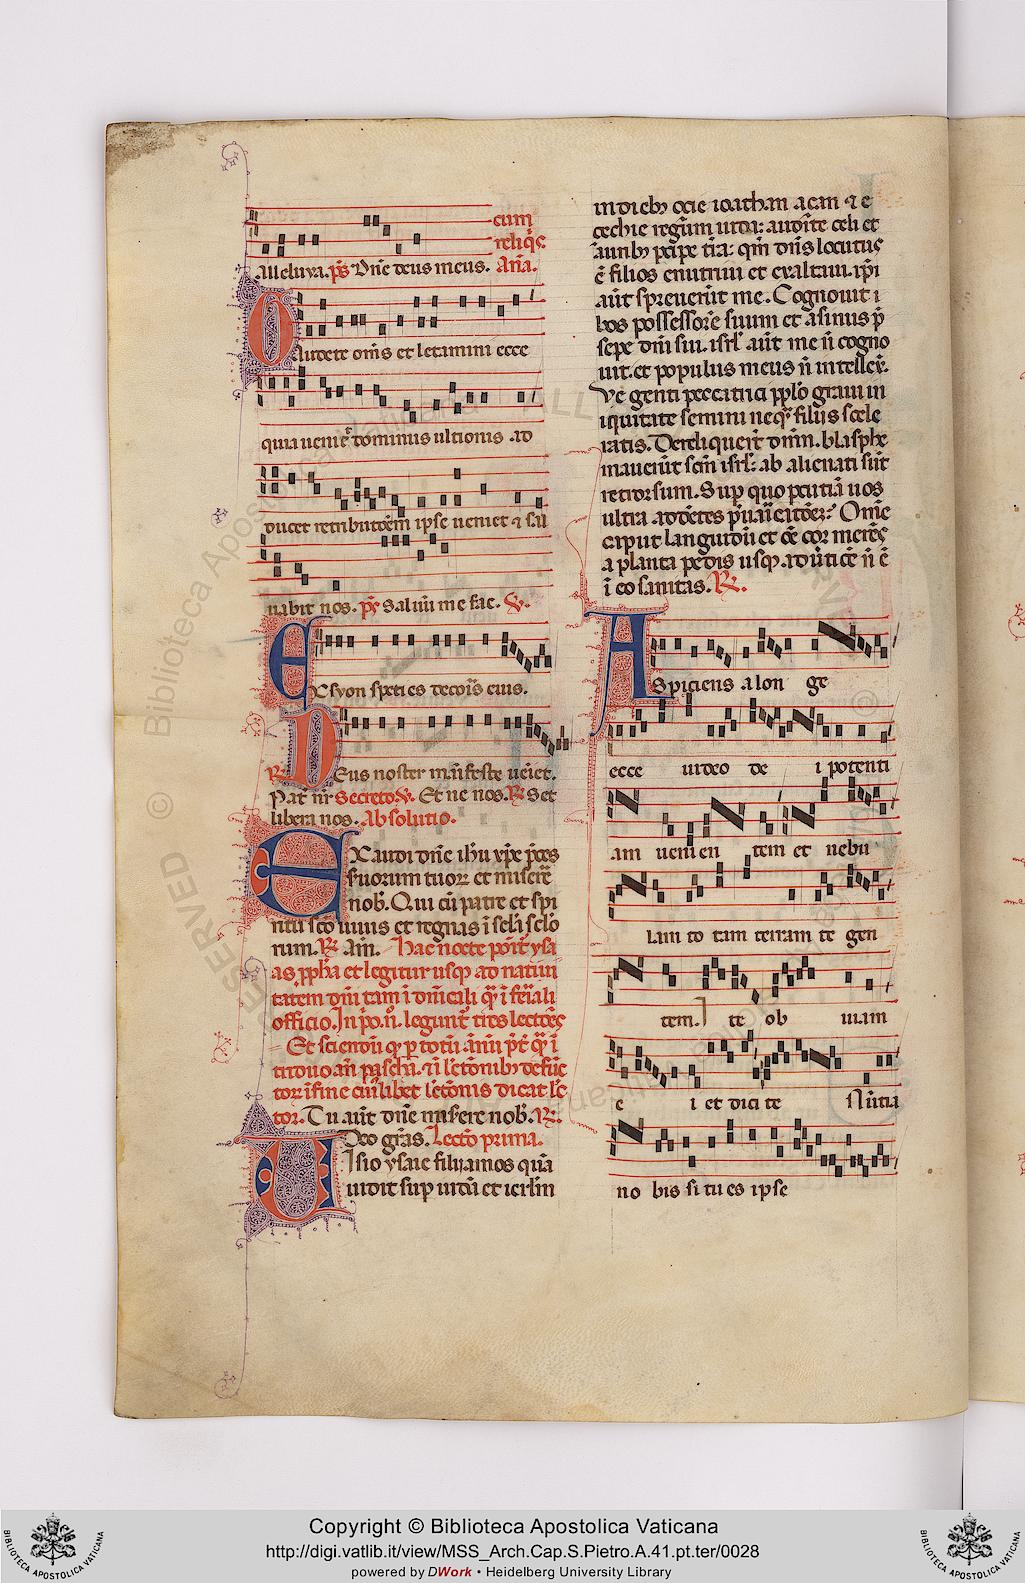 cum
reliq̄s
alleluya. ps̄ Dn̄e deus meus. An̄a.
Gaudete om̄s et letamini ecce
quia ueniet dominus ultionis ad
ducet retributōem ipse ueniet ⁊ sal
uabit nos. ps̄ Saluū me fac. V̄.
Ex syon speties decoris eius.
R̄ Deus noster manifeste ueiet.
Pat̄ nr̄ Secreto. V̄. Et ne nos. R̄ Set
libera nos. Absolutio.
Exaudi dn̄e ih̄u xp̄e p̄ces
suorum tuoꝝ et miserē
nob̄. Qui cū patre et spi
ritu scō uiuis et regnas ī sclā sclō
rum. R̄ am̄. Hac nocte ponit̄ ysa
as ꝓph̄a et legitur usqꝫ ad natiui
tatem dn̄i tam ī dn̄icali qꝫ ī feriali
officio. In p̄o. n̄. legunt̄ tres lectōes
Et sciendū qꝫ ꝑ totū annū p̄t qꝫ ī
triduo an̄ pascha. ⁊ ī lectōnibꝫ defūc
toꝝ ī fine cuiuslibet lectōnis dicat lec
tor. Tu aut̄ dn̄e miserere nob̄. R̄.
Deo gr̄as. Lectō prima.
Uisio ysaie filii amos quā
uidit suꝑ iudā et ierl̄m
in dieb̄ ozie ioathan acam ⁊ e
cechie regum iuda: audite celi et
auribꝫ ꝑcipe t̄ra: qm̄ dn̄s locutus
ē filios enutriui et exaltaui. ip̄i
aut̄ spreuerūt me. Cognouit
bos possessorē suum et asinus p̄
sepe dn̄i sui. isrl̄ aut̄ me n̄ cogno
uit. et populus meus n̄ intellex̄.
Ve genti peccatrici ppl̄o graui in
iquitate semini neqꝫ filiis scele
ratis. Dereliquer̄t dn̄m. blasphe
mauerūt scm̄ isrl̄: ab alienati sūt
retrorsum. Suꝑ quo ꝑcutiā uos
ultra addētes p̄uaricatōez? Om̄e
caput languidū et oē cor merēs
a planta pedis usqꝫ ad ūticē n̄ ē
ī eo sanitas. R̄.
Aspiciens a lon ge
ecce uideo de i potenti
am uenien tem et nebu
lam to tam terram te gen
tem. I te ob uiam
e i et dici te Nūtia
no bis si tu es ipse
Copyright © Biblioteca Apostolica Vaticana
http://digi.vatlib.it/view/MSS_Arch.Cap.S.Pietro.A.41.pt.ter/0028
powered by DWork • Heidelberg University Library